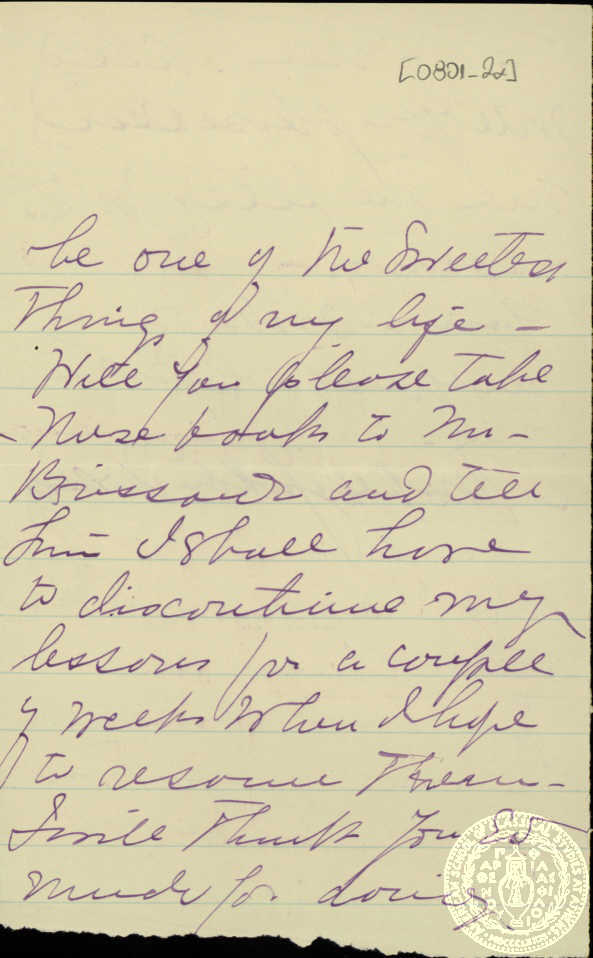 [0801-2α]
be one of the Sweetest
Things of my life -
Will you please take
these books to Mr -
and tell
him I shall have
to discontinue my
lessons for a couple
of weeks When I hope
to resume them -
I will Thank You so
much for doing
AMERICAN SCHOOL OF CLASSICAL STUDIES AT ATHENS